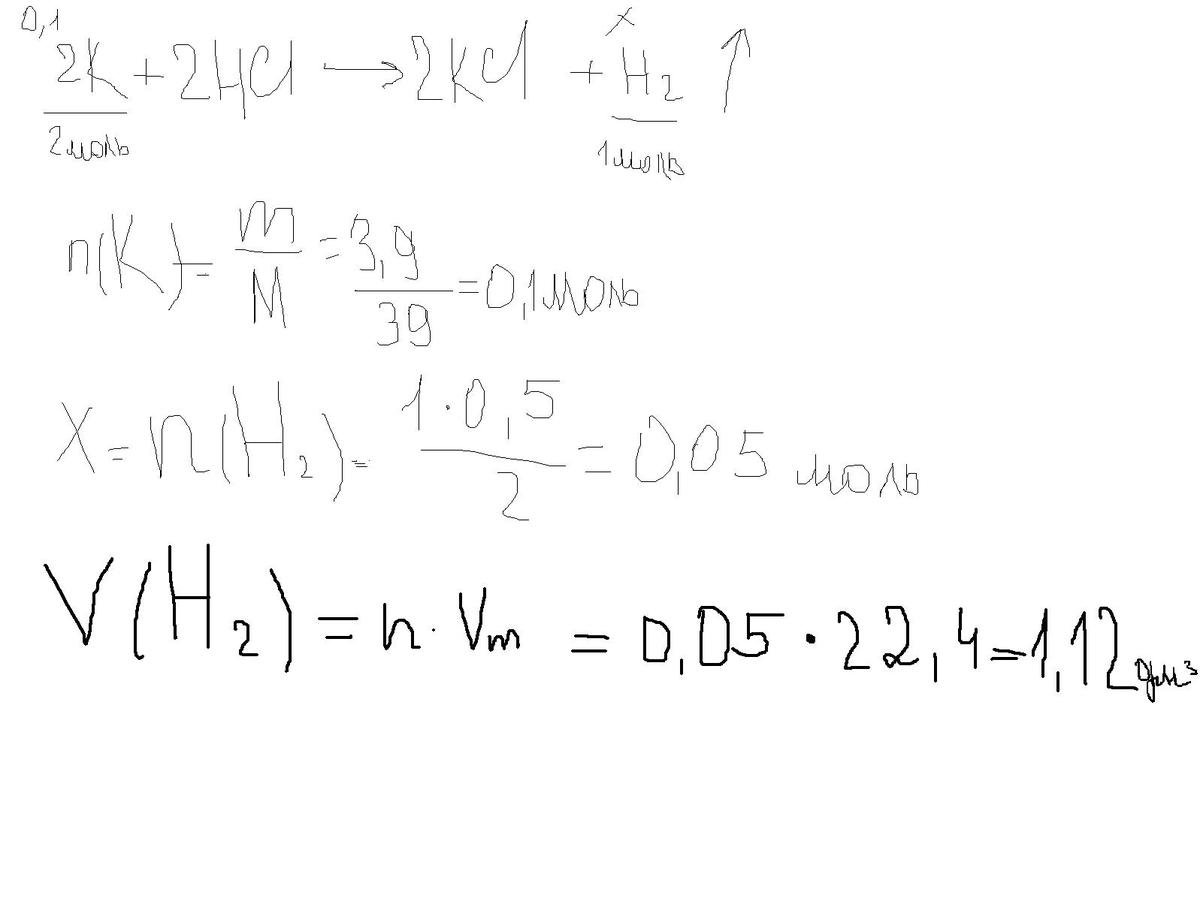 0,1 x
2K + 2HCl → 2KCl + H₂ ↑
2моль 1моль
n(K) = m/M = 3,9/39 = 0,1моль
X = n(H₂) = 1·0,5/2 = 0,05 моль
V(H₂) = n·Vm = 0,05·22,4=1,12дм³